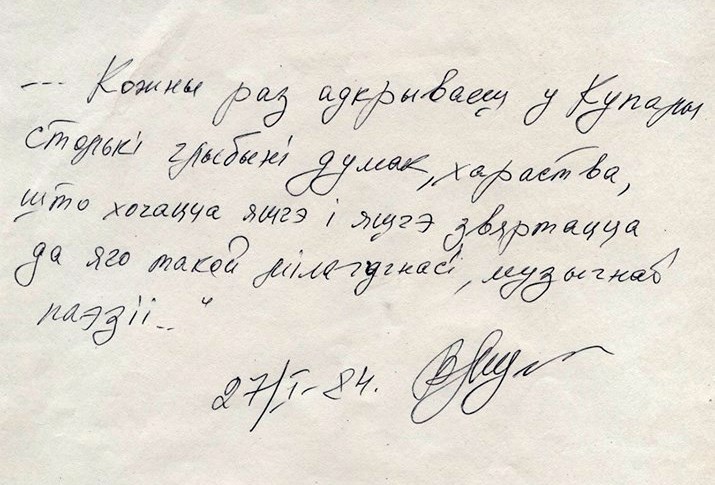 --- Кожны раз адкрываеш у Купалы
столькі глыбыні думак, хараства,
што хочацца яшчэ і яшчэ звяртацца
да яго такой мілагучнасі, музычнай
паэзіі..."
27/I-84.